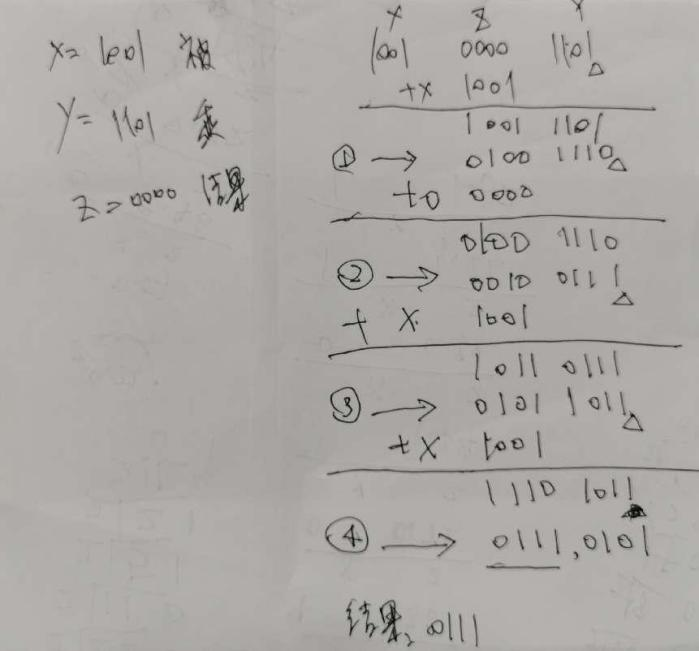 X= 1001 被
Y= 1101 乘
Z=0000 结果
X Z Y
1001 0000 1101
+x 1001
1001 1101
① → 0100 1110
+0 0000
0100 1110
② → 0010 0111
+ X 1001
1011 0111
③ → 0101 1011
+X 1001
1110 1011
④ → 0111,0101
结果、0111